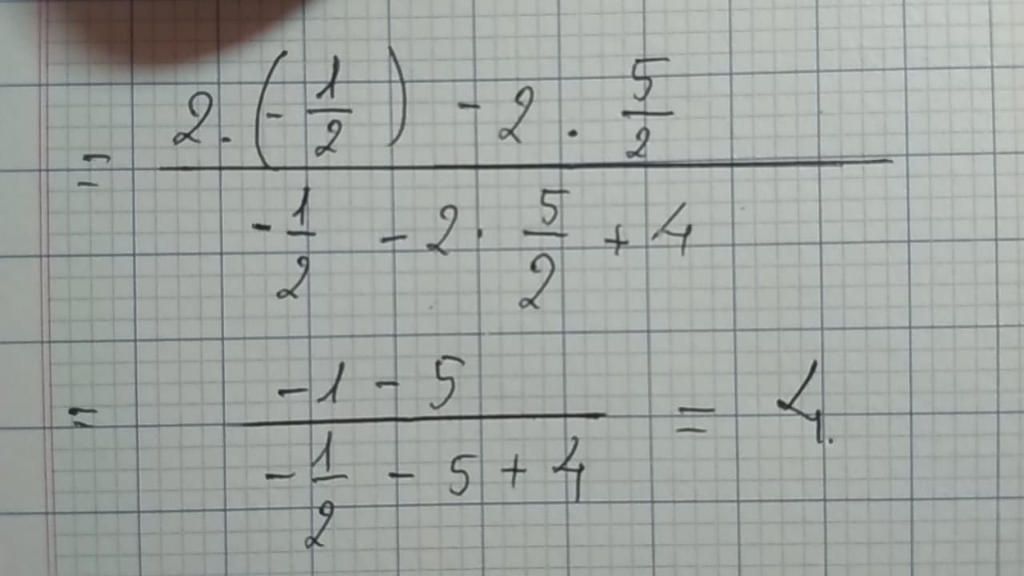 = \frac{2 \cdot \left(-\frac{1}{2}\right) - 2 \cdot \frac{5}{2}}{-\frac{1}{2} - 2 \cdot \frac{5}{2} + 4}
= \frac{-1 - 5}{-\frac{1}{2} - 5 + 4} = 4.